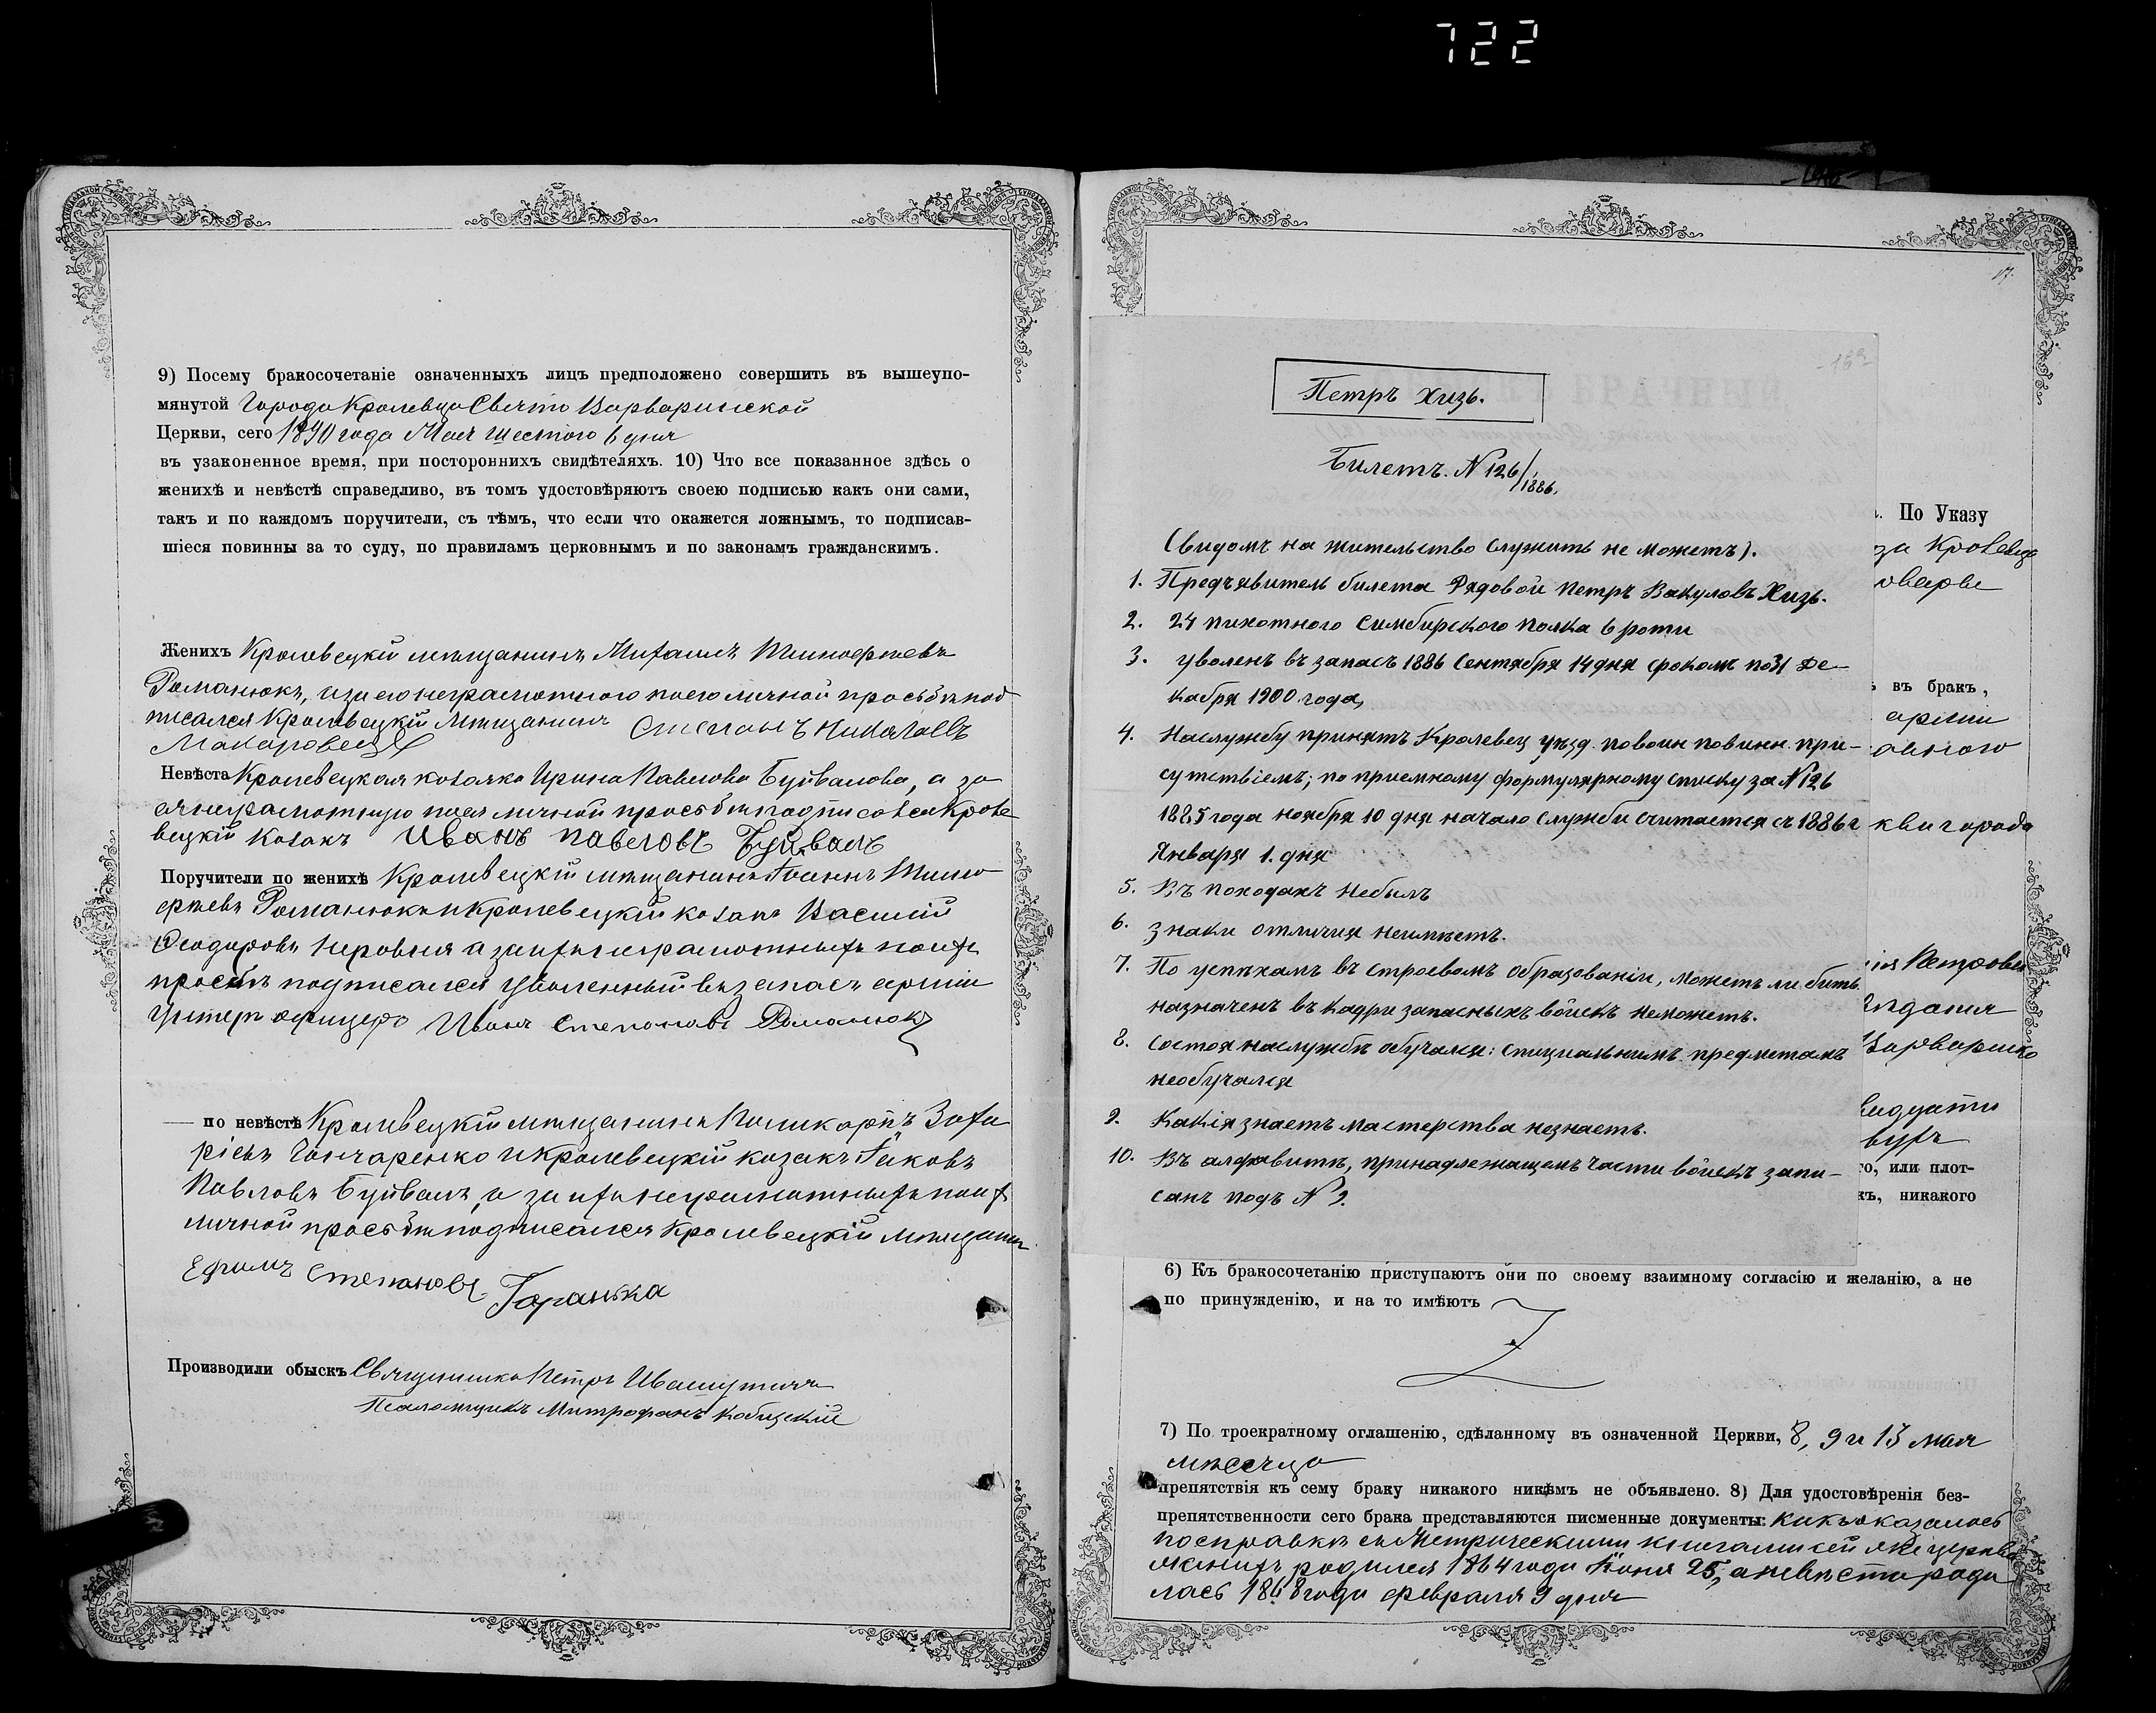 722
9) Посему бракосочетаніе означенныхъ лицъ предположено совершить въ вышеупо-
мянутой Города Кролевца Свято Варваринской
Церкви, сего 1890 года Мая шестого 6 дня
въ узаконенное время, при постороннихъ свидѣтеляхъ. 10) Что все показанное здѣсь о
женихѣ и невѣстѣ справедливо, въ томъ удостовѣряютъ своею подписью какъ они сами,
такъ и по каждомъ поручители, съ тѣмъ, что если что окажется ложнымъ, то подписав-
шіеся повинны за то суду, по правиламъ церковнымъ и по законамъ гражданскимъ.
Женихъ Кролевецкій мѣщанинъ Михаилъ Тимофеевъ
Романюкъ, а за его неграмотного по его личной просьбѣ под
писался Кролевецкій Мѣщанинъ Степанъ Николаевъ
Макаровецъ
Невѣста Кролевецкая козачка Ирина Павлова Буйвалова, а за
ея неграмотную по ея личной просьбѣ подписался Кроле
вецкій козакъ Иванъ Павловъ Буйвалъ
Поручители по женихѣ Кролевецкій мѣщанинъ Іоаннъ Тимо
феевъ Романюкъ и Кролевецкій козакъ Василій
Феодоровъ а за ихъ неграмотныхъ по ихъ
просьбѣ подписался уволенный въ запасъ арміи
Унтеръ офицеръ Иванъ Степановъ Романюкъ
— по невѣстѣ Кролевецкій мѣщанинъ Поликарпъ Заха
ріевъ Гончаренко и кролевецкій козакъ Іаковъ
Павловъ Буйвалъ, а за ихъ неграмотныхъ по ихъ
личной просьбѣ подписался Кролевецкій мѣщанин
Ефимъ Степановъ Горанька
Производили обыскъ Священникъ Петръ
Псаломщикъ Митрофанъ Кобицскій
17.
Петръ Хизь.
Билетъ. N 126/1886.
(видомъ на жительство служить не можетъ).
1. Предъявитель билета Рядовой Петръ Вакуловъ Хизь.
2. 24 пихотного Симбирского полка 6 роти
3. уволенъ въ запасъ 1886 Сентября 14 дня срокомъ по 31 Де-
кабря 1900 года,
4. На службу принятъ Кролевец уѣзд. по воин повинн. при-
сутствіемъ; по приемному формулярному списку за N 126
1885 года ноября 10 дня начало служби считается съ 1886 г
Января 1. дня
5. Въ походахъ небылъ
6. знаки отличия неимѣетъ.
7. По успѣхамъ въ строевомъ образованіи, можетъ ли бить
назначенъ въ кадри запасныхъ войскъ неможетъ.
8. состоя на службѣ обучался: специальнимъ предметамъ
необучался
9. Какія знаетъ мастерства незнаетъ.
10. Въ алфавитѣ, принадлежащемъ части войскъ запи-
санъ подъ N 9.
По Указу
за Кролевца
въ бракъ,
арміи
кви города
Петрова
Варваринско
го, или плот-
никакого
6) Къ бракосочетанію приступаютъ они по своему взаимному согласію и желанію, а не
по принужденію, и на то имѣютъ
7) По троекратному оглашенію, сдѣланному въ означенной Церкви, 8, 9 и 13 мая
мѣсяца
препятствія къ сему браку никакого никѣмъ не объявлено. 8) Для удостовѣренія без-
препятственности сего брака представляются писменные документы: какъ оказалось
по справкѣ съ Метрическими книгами сей же церкви
женихъ родился 1864 года Іюня 25, а невѣста роди
лась 1868 года февраля 9 дня